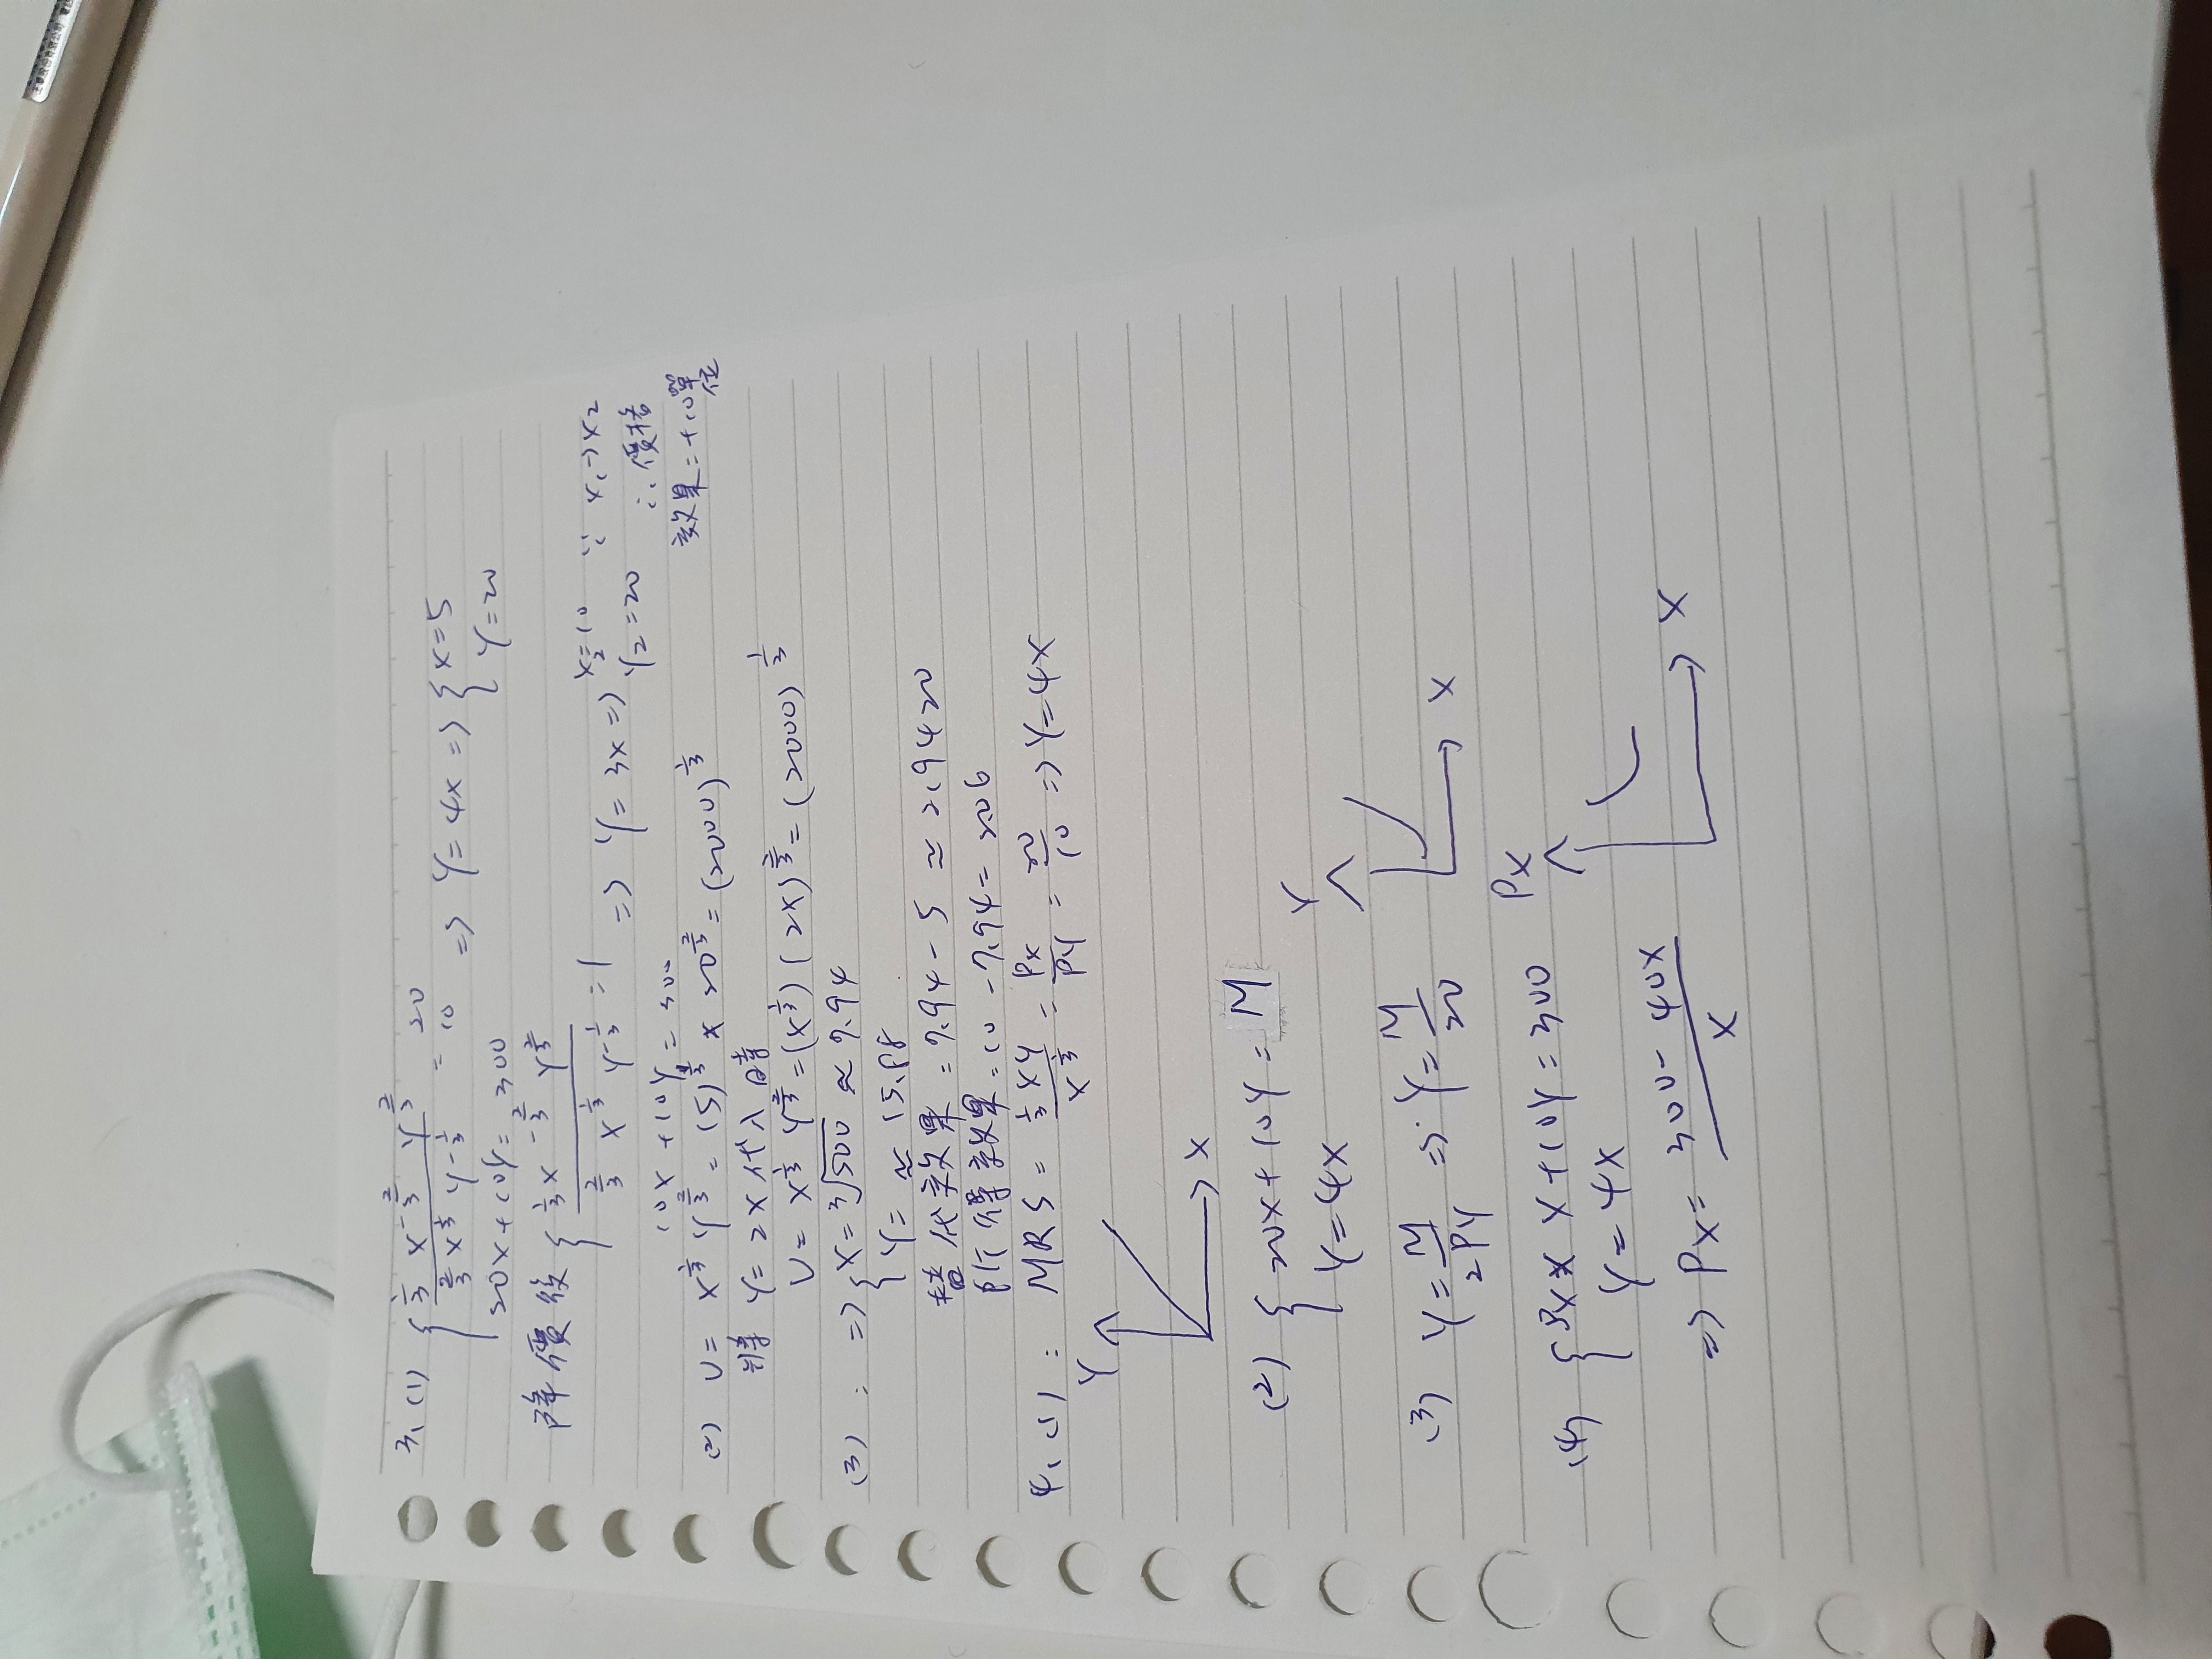 3、(1) { (1/3 X^(-2/3) Y^(2/3)) / (2/3 X^(1/3) Y^(-1/3)) = 20/10 => Y=4X => { X=5
20X+10Y=300 Y=20
降價後 { (1/3 X^(-2/3) Y^(2/3)) / (2/3 X^(1/3) Y^(-1/3)) = 1 => Y=3X => X₂=10 ∵ X₁→X₂
10X+10Y=300 Y₂=20 ∴價格
效果=+10單位
(2) U= X^(1/3) Y^(2/3) = (5)^(1/3) * 20^(2/3) = (2000)^(1/3)
將 Y=2X代入時
U= X^(1/3) Y^(2/3) = (X^(1/3)) (2X)^(2/3) = (2000)^(1/3)
(3): => { X=³√500 ≈7.94
Y= ≈15.88
替代效果=7.94-5≈2.9420
所得效果=10-7.94=2.06
4、(1): MRS = (1/3 XY) / (X^(1/3)) = PX/PY = 20/10 => Y=4X
Y
X
(2) { 20X+10Y=M
Y=4X
Y
X
(3) Y=M/2PY => Y=M/20
(4) { PX* X+10Y=300
Y=4X
=> PX= (300-40X)/X
PX
X